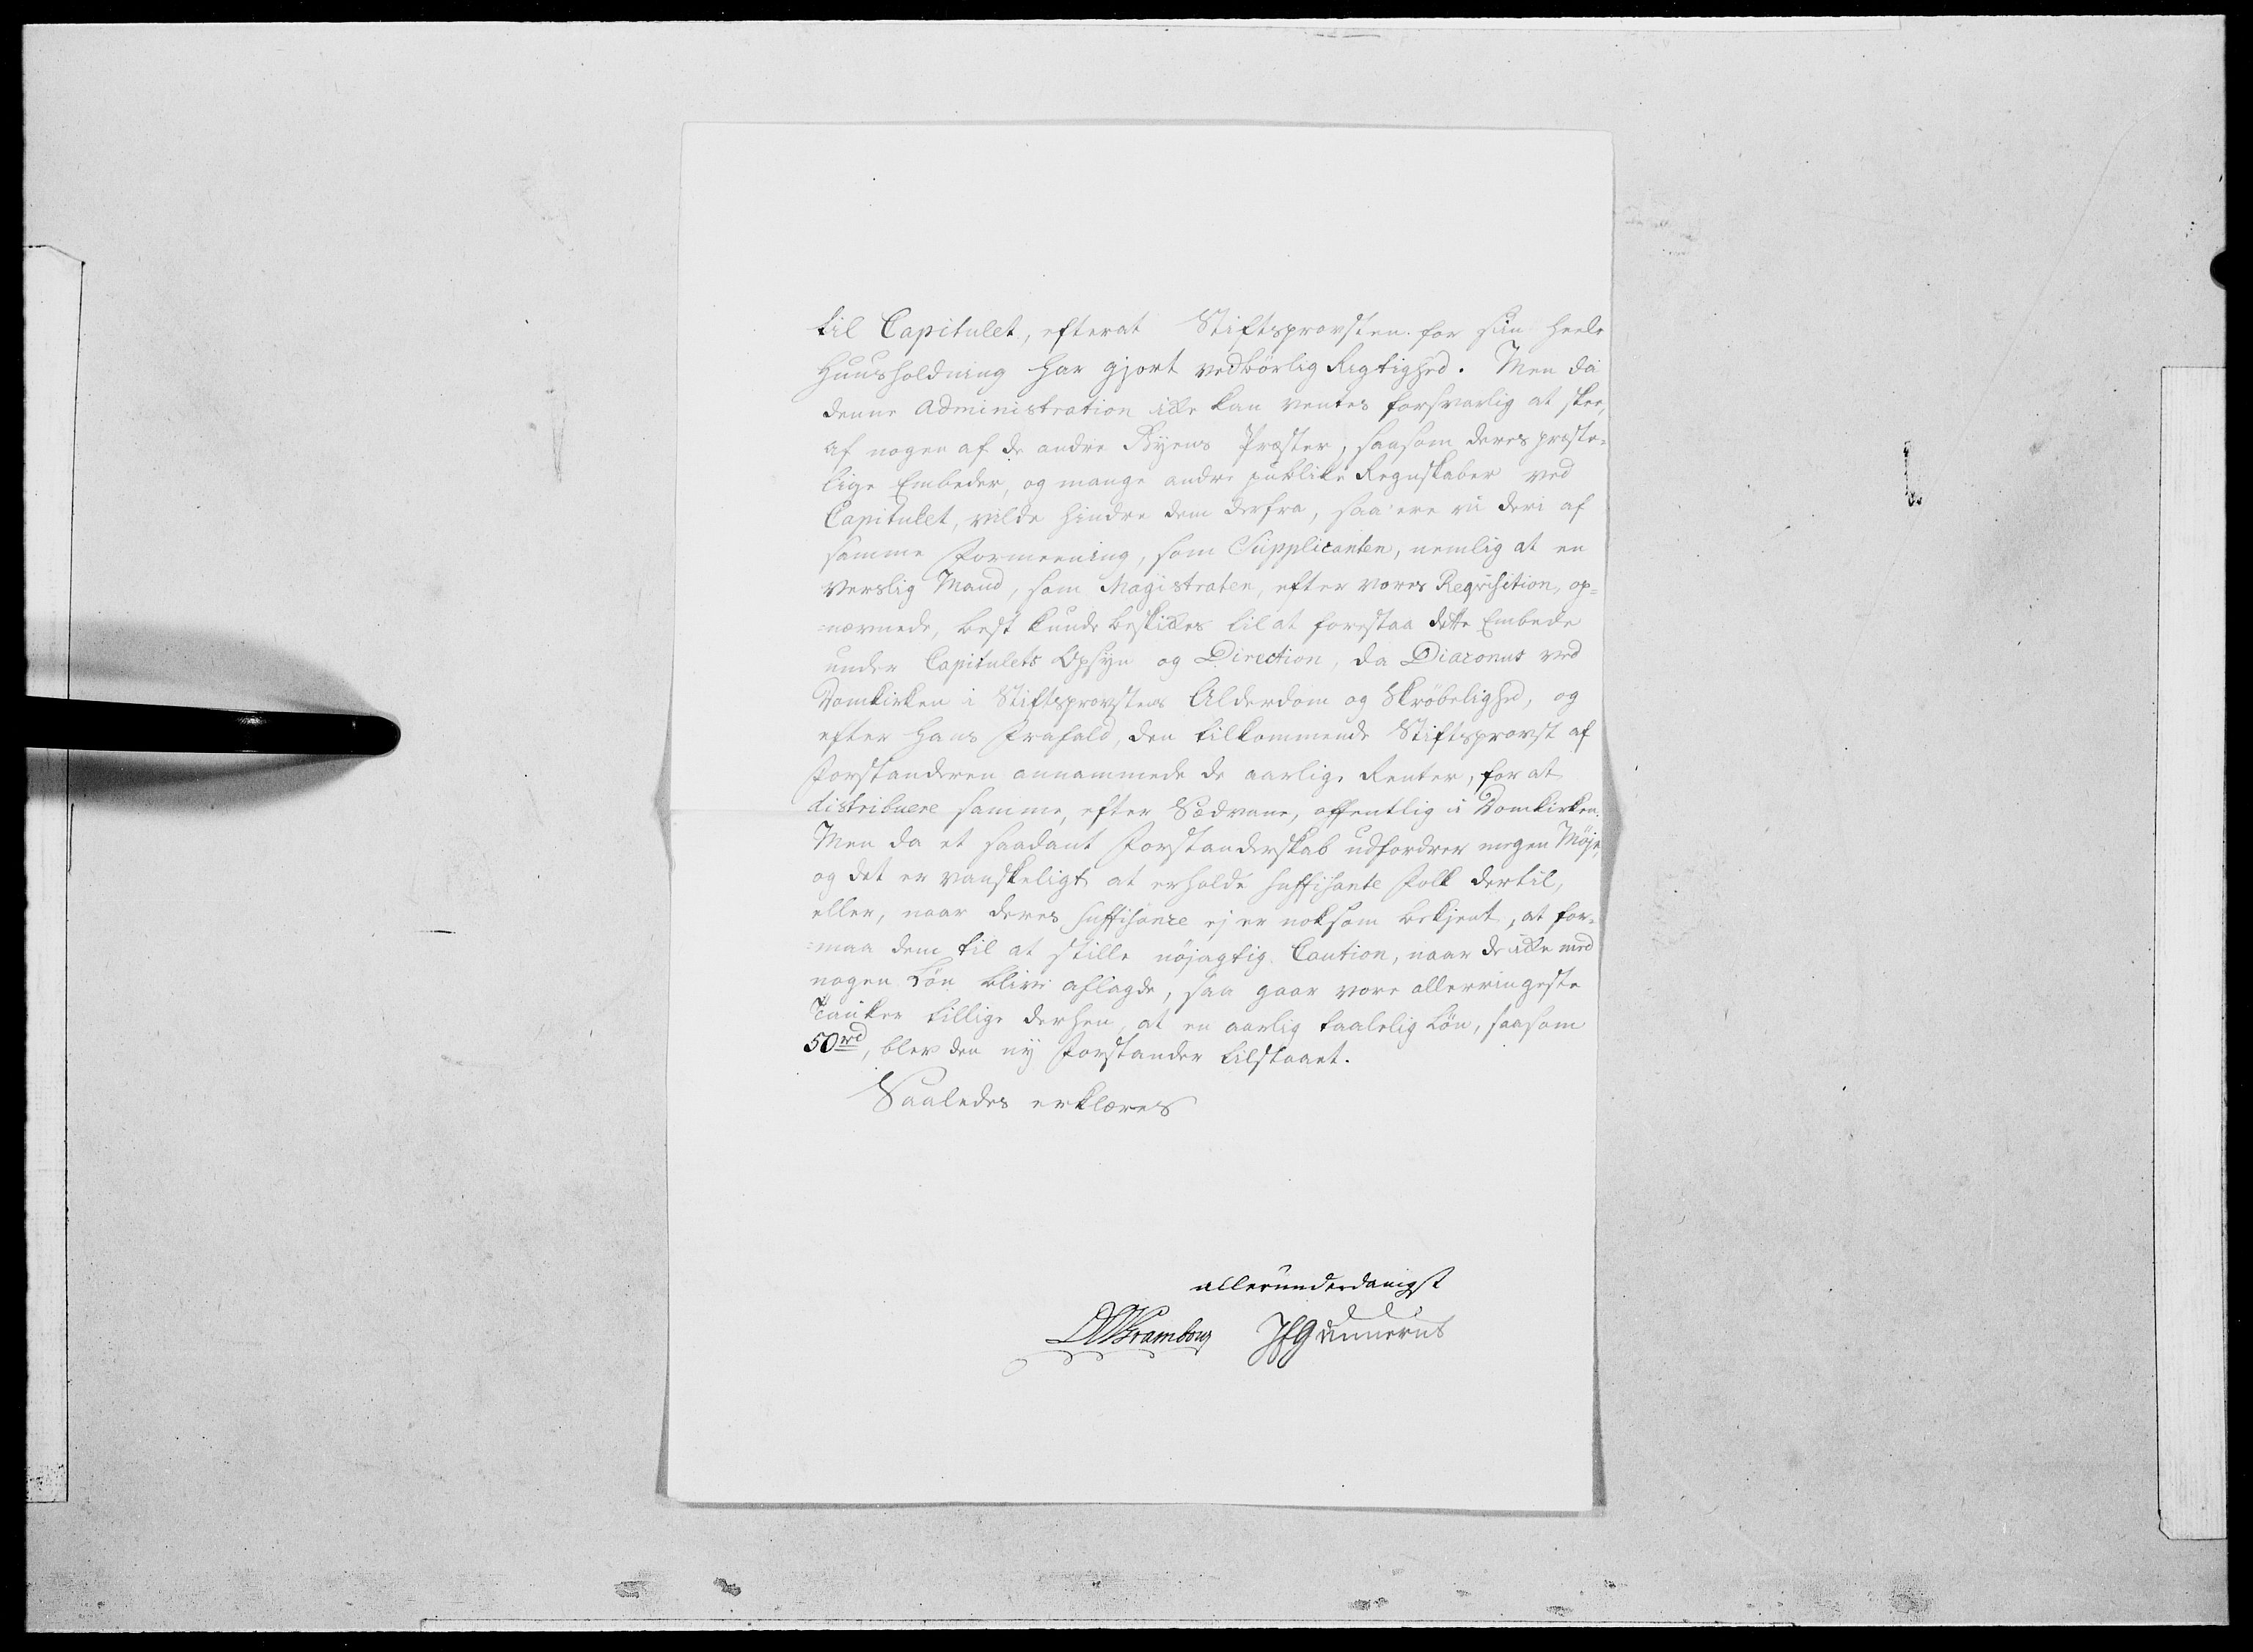 til Capitulet, efterat Stiftsprovsten for sin heele
Huusholdning har gjort vedbörlig Rigtighed. Men da
denne Administration ikke kan ventes forsvarlig at skee,
af nogen af de andre Byens Præster, saasom deres præste-
lige Embeder, og mange andre publike Regnskaber ved
Capitulet, vilde hindre dem derfra, saa ere vi deri af
samme Formeening, som Supplicanten, nemlig at en
verslig Mand, som Magistraten, efter vores Requisition, op=
=nævnede, best kunde beskikkes til at forestaa dette Embede
under Capitulets Opsyn og Direction, da Diaconus ved
Domkirken i Stiftsprovstens Alderdom og Skröbelighed, og
efter hans Frafald, den tilkommende Stiftsprovst af
Forstanderen annammede de aarlige Renter, for at
distribuere samme, efter Sædvane, offentlig i Domkirken.
Men da et saadant Forstanderskab udfordrer megen Möje,
og det er vanskeligt at erholde suffisante Folk dertil,
eller, naar deres suffisance ej er noksom bekjent, at for=
=maa dem til at stille nöjagtig Caution, naar de ikke med
nogen Lön blive aflagde, saa gaar vore allerringeste
Tanker tillige derhen, at en aarlig taalelig Lön, saasom
50 rd, blev den ny Forstander tilstaaet.
Saaledes erklæres
allerunderdanigst
JEGunnerus